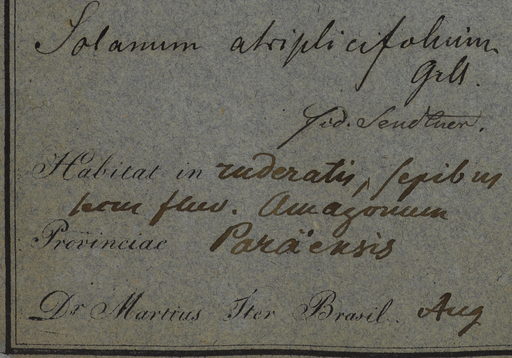 Solanum atriplicifolium
Gills.
fid. Sendtner.
Habitat in ruderatis, sepibus
secus fluv. Amazonum
Provinciae Paraensis
Dr Martius Iter Brasil. Aug